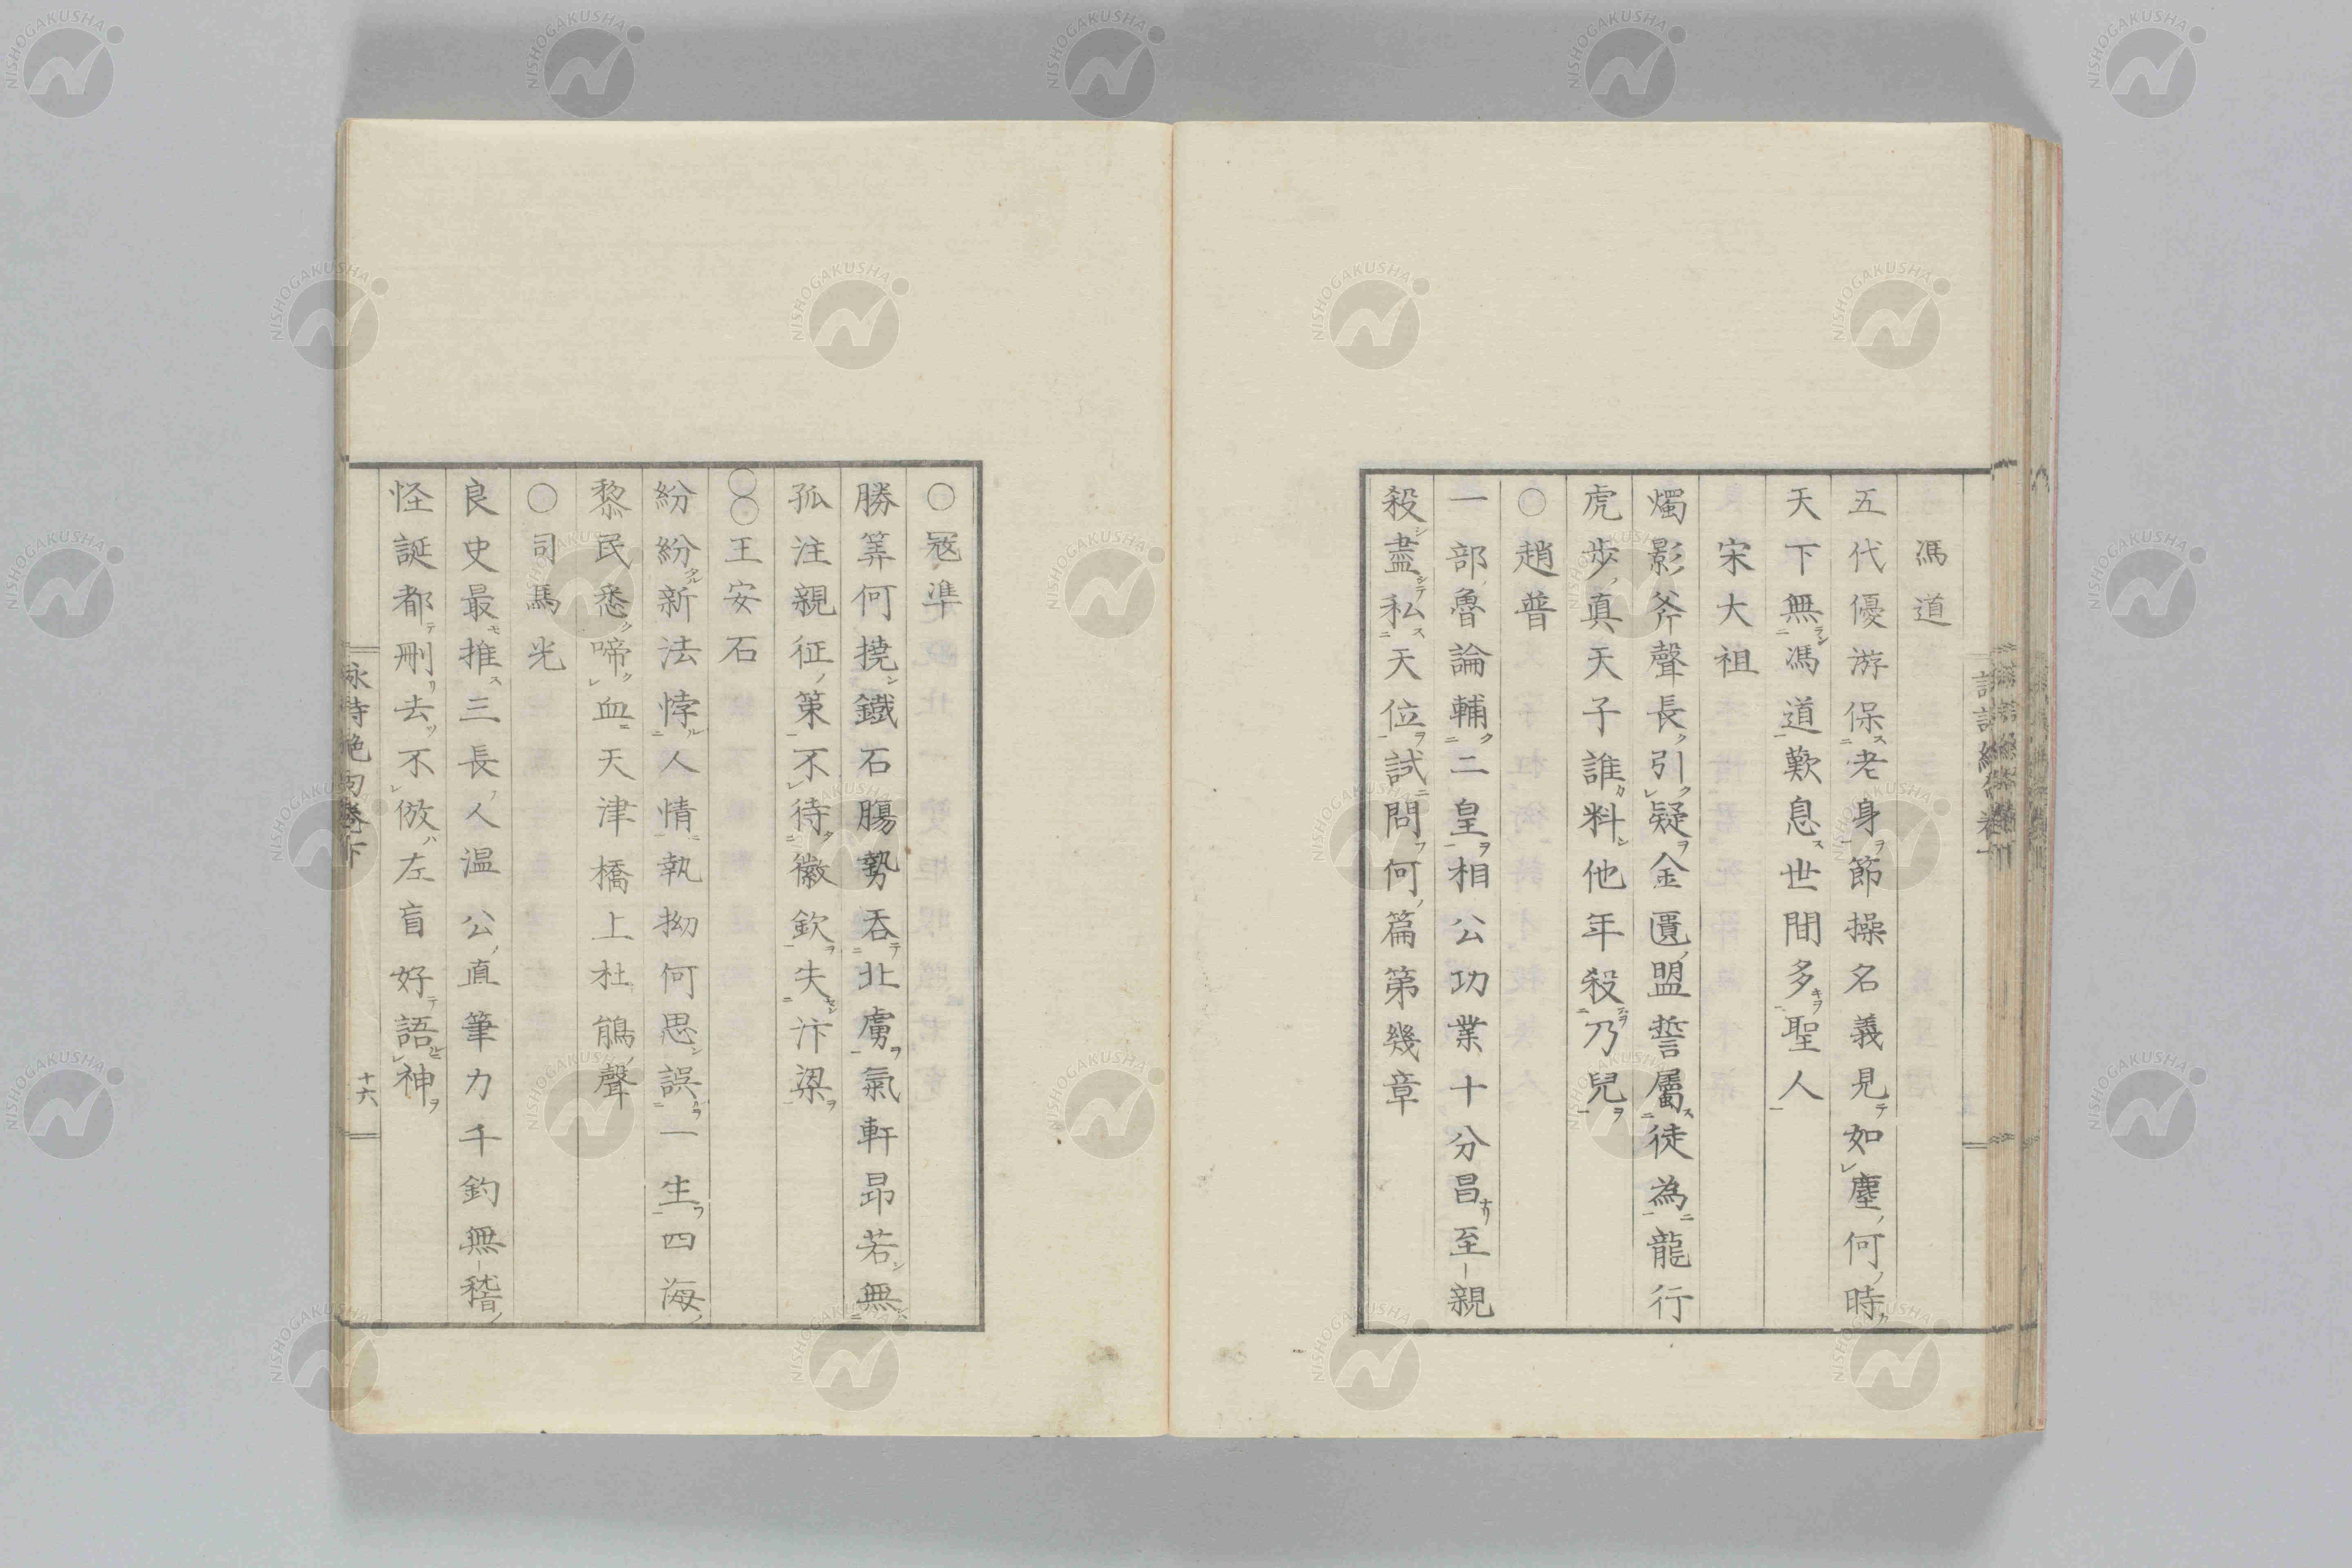 馮道
五代優游保老身節操名義見如塵何時
天下無馮道歎息世間多聖人
宋大祖
燭影斧聲長引疑金匱盟誓屬徒為龍行
虎歩真天子誰料他年殺乃兒
○趙普
一部魯論輔二皇相公功業十分昌至親
殺盡私天位試問何篇第幾章
○寇準
勝筭何撓鐵石腸勢吞北虜氣軒昂若無
孤注親征策不待徽欽失汴梁
○○王安石
紛紛新法悖人情執拗何思誤一生四海
黎民悉啼血天津橋上杜鵑聲
○司馬光
良史最推三長人温公直筆力千鈞無稽
怪誕都刪去不倣左盲好語神
詠詩絶句巻下
十六
NISHOGAKUSHA